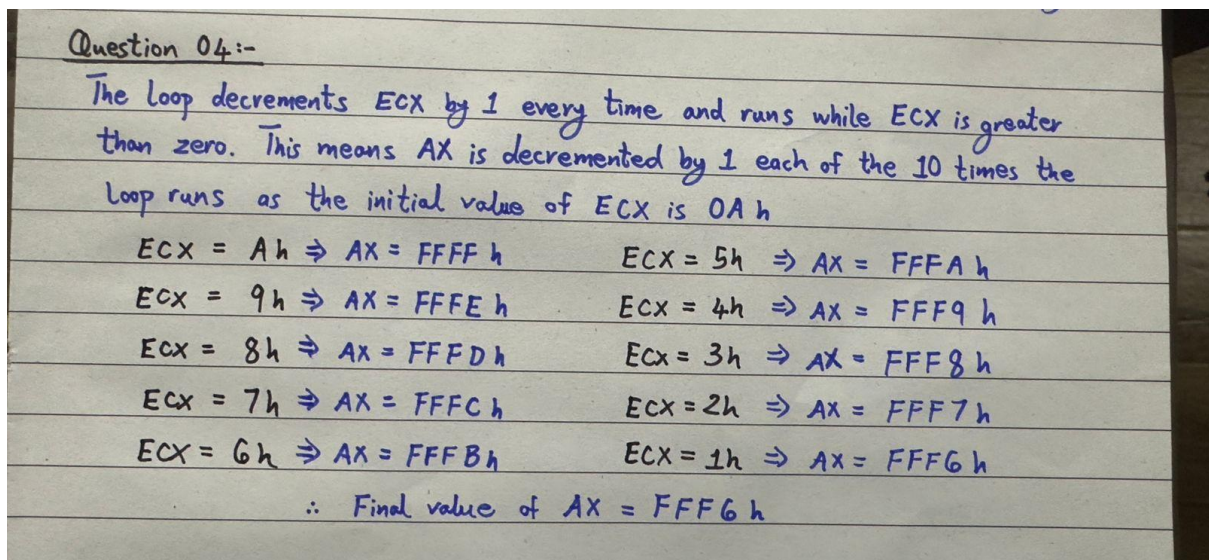 Question 04:-
The loop decrements ECX by 1 every time and runs while ECX is greater
than zero. This means AX is decremented by 1 each of the 10 times the
loop runs as the initial value of ECX is 0A h
ECX = Ah ⇒ AX = FFFF h
ECX = 9h ⇒ AX = FFFE h
ECX = 8h ⇒ AX = FFFD h
ECX = 7h ⇒ AX = FFFC h
ECX = 6h ⇒ AX = FFFB h
ECX = 5h ⇒ AX = FFFA h
ECX = 4h ⇒ AX = FFF9 h
ECX = 3h ⇒ AX = FFF8 h
ECX = 2h ⇒ AX = FFF7 h
ECX = 1h ⇒ AX = FFF6 h
∴ Final value of AX = FFF6 h